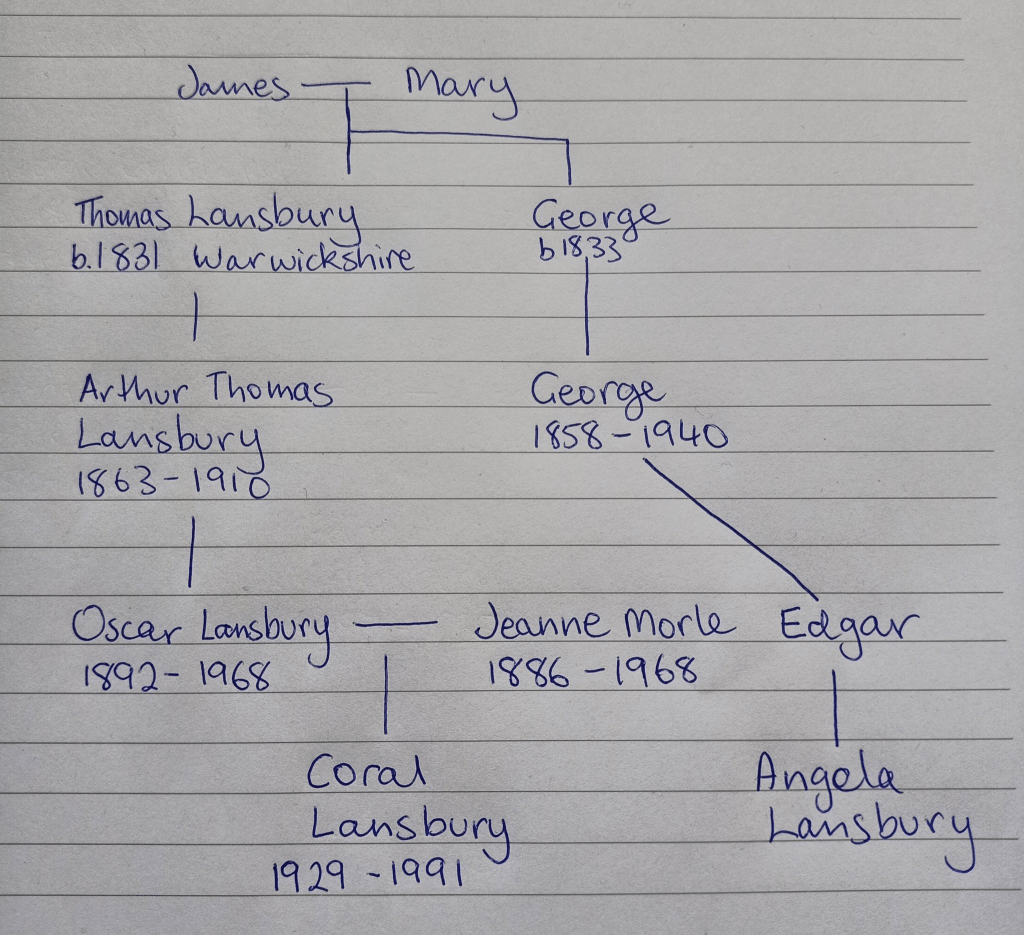 James Mary
Thomas Lansbury George
b.1831 Warwickshire b1833
Arthur Thomas George
Lansbury 1858-1940
1863-1910
Oscar Lansbury Jeanne Morle Edgar
1892-1968 1886-1968
Coral Angela
Lansbury Lansbury
1929-1991